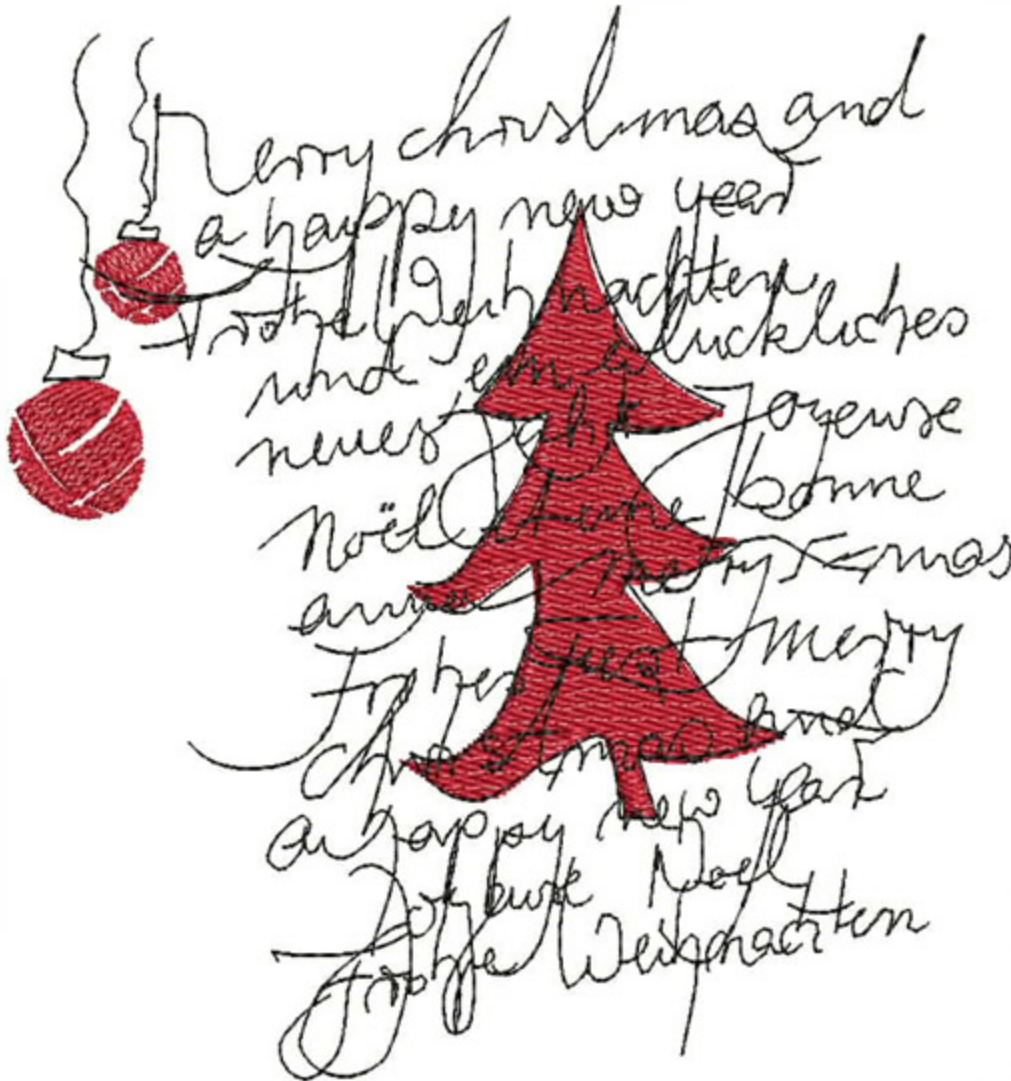 Merry christmas and
a happy new year
Frohe Weihnachten
und ein glückliches
neues Jahr Joyeuse
Noël et une bonne
année merry xmas
Frohes Fest merry
christmas and
a happy new year
Joyeuse Noël
Frohe Weihnachten